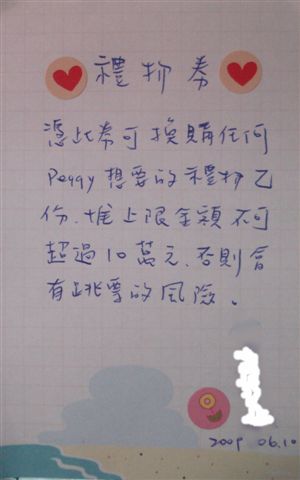 禮物券
憑此券可換購任何
Peggy想要的禮物乙
份,惟上限金額不可
超過10萬元,否則會
有跳票的風險。
2009 06.10